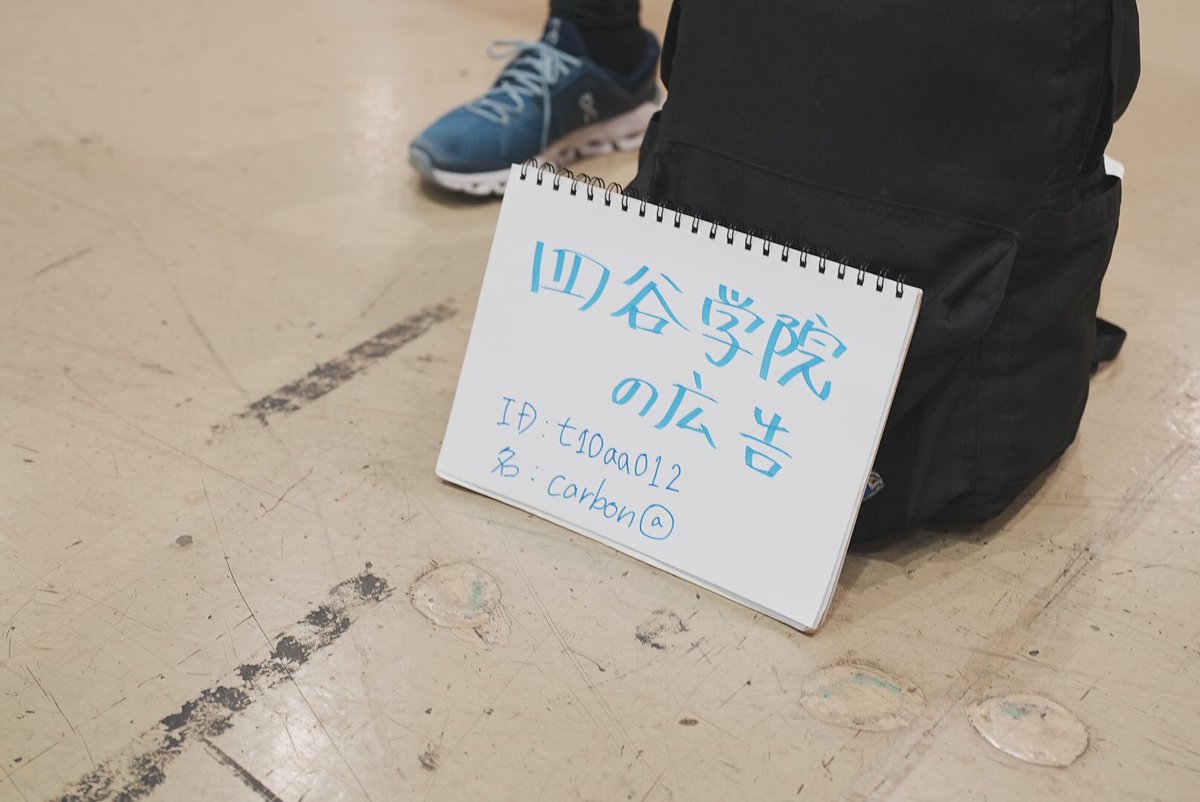 四谷学院
の広告
ID:t10aa012
名:carbonⓐ